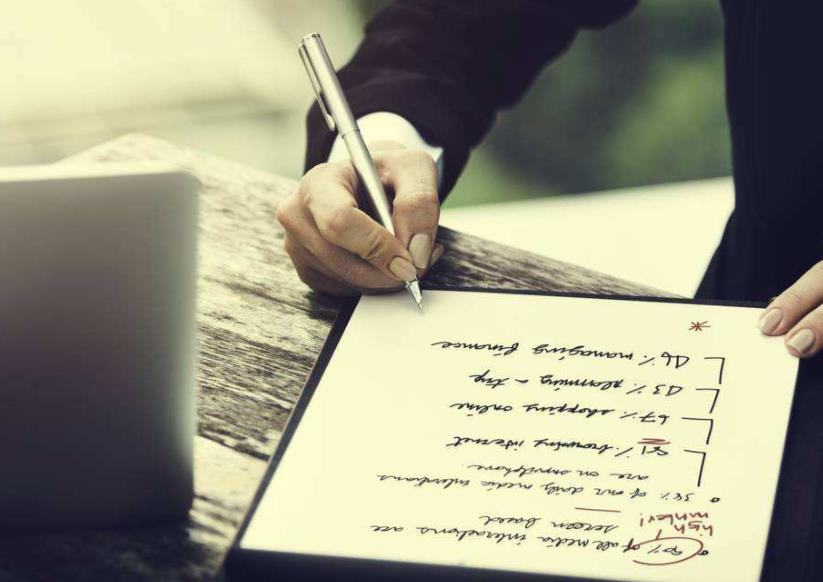 • 90% of all media interactions are
high
number!
screen based
• 38% of our daily media interactions
are on smartphone.
81% browsing internet
67% shopping online
43% planning a trip
46% managing finance
*